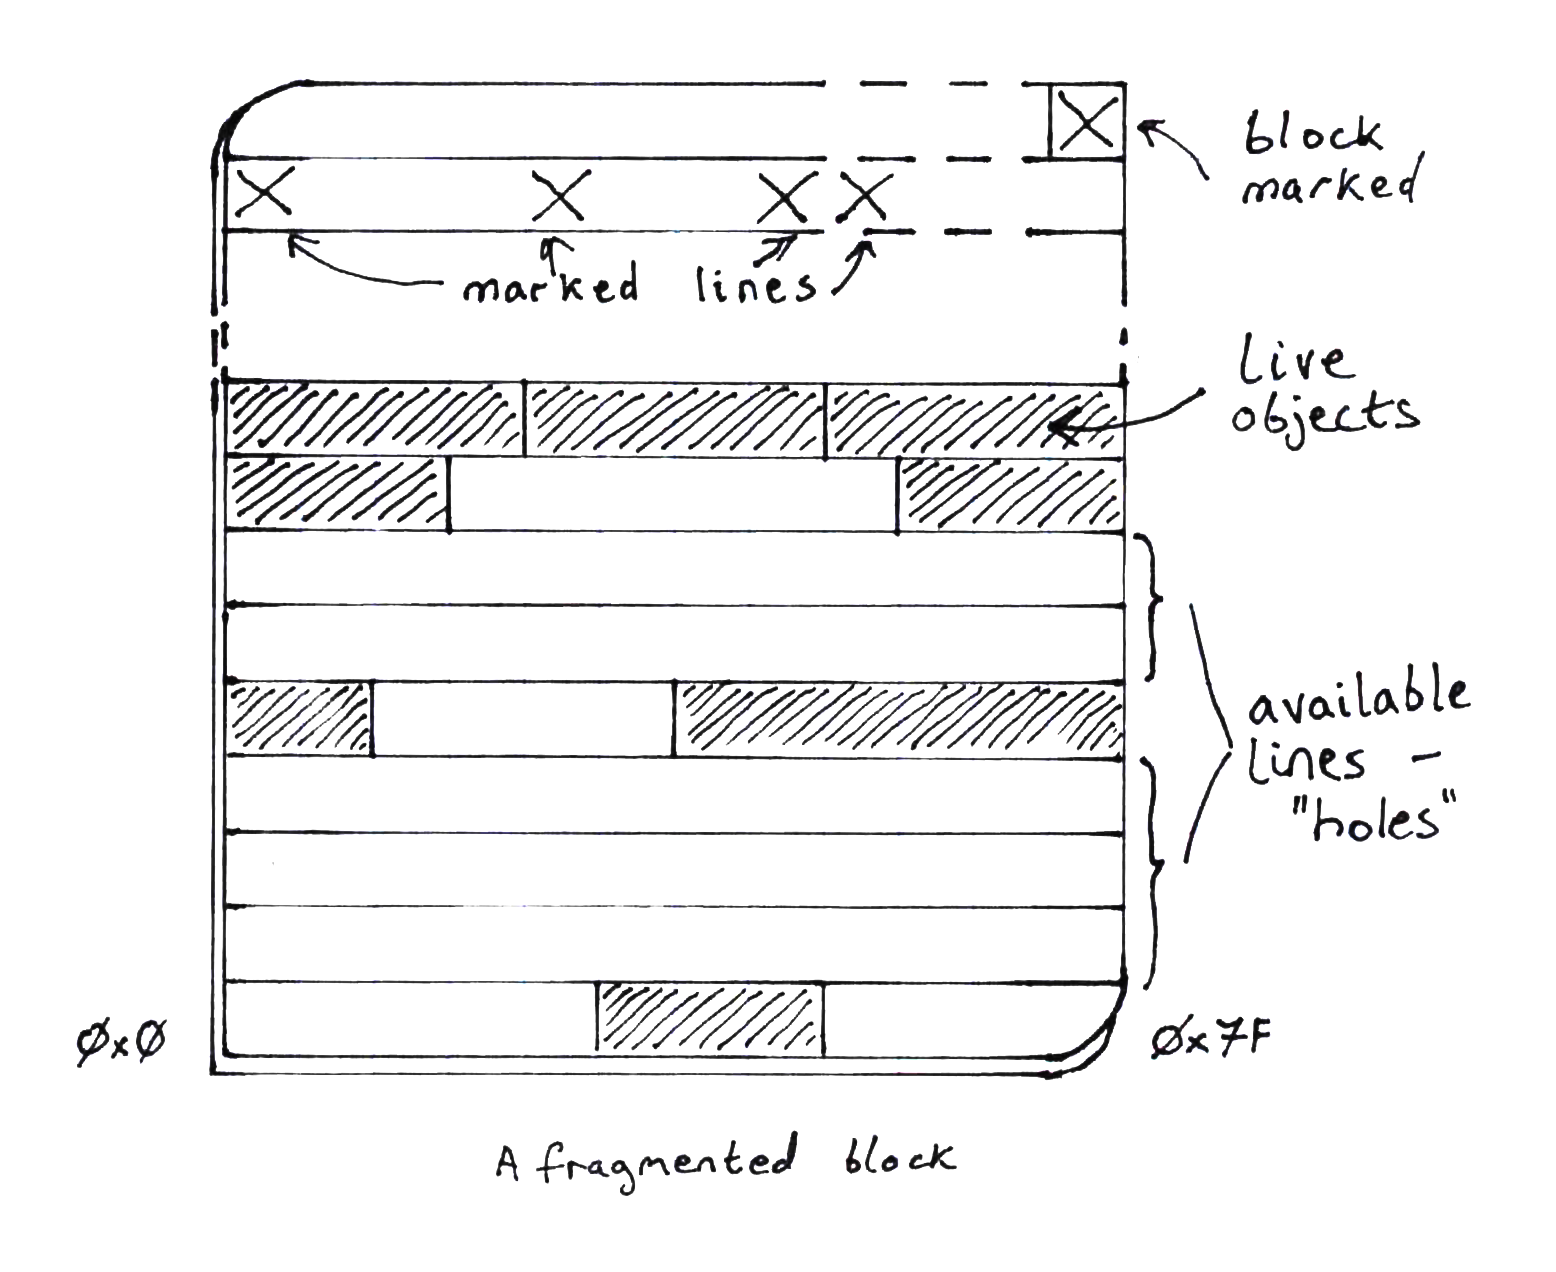 block
marked
marked lines
Live
objects
available
lines –
"holes"
0x0
0x7F
A fragmented block